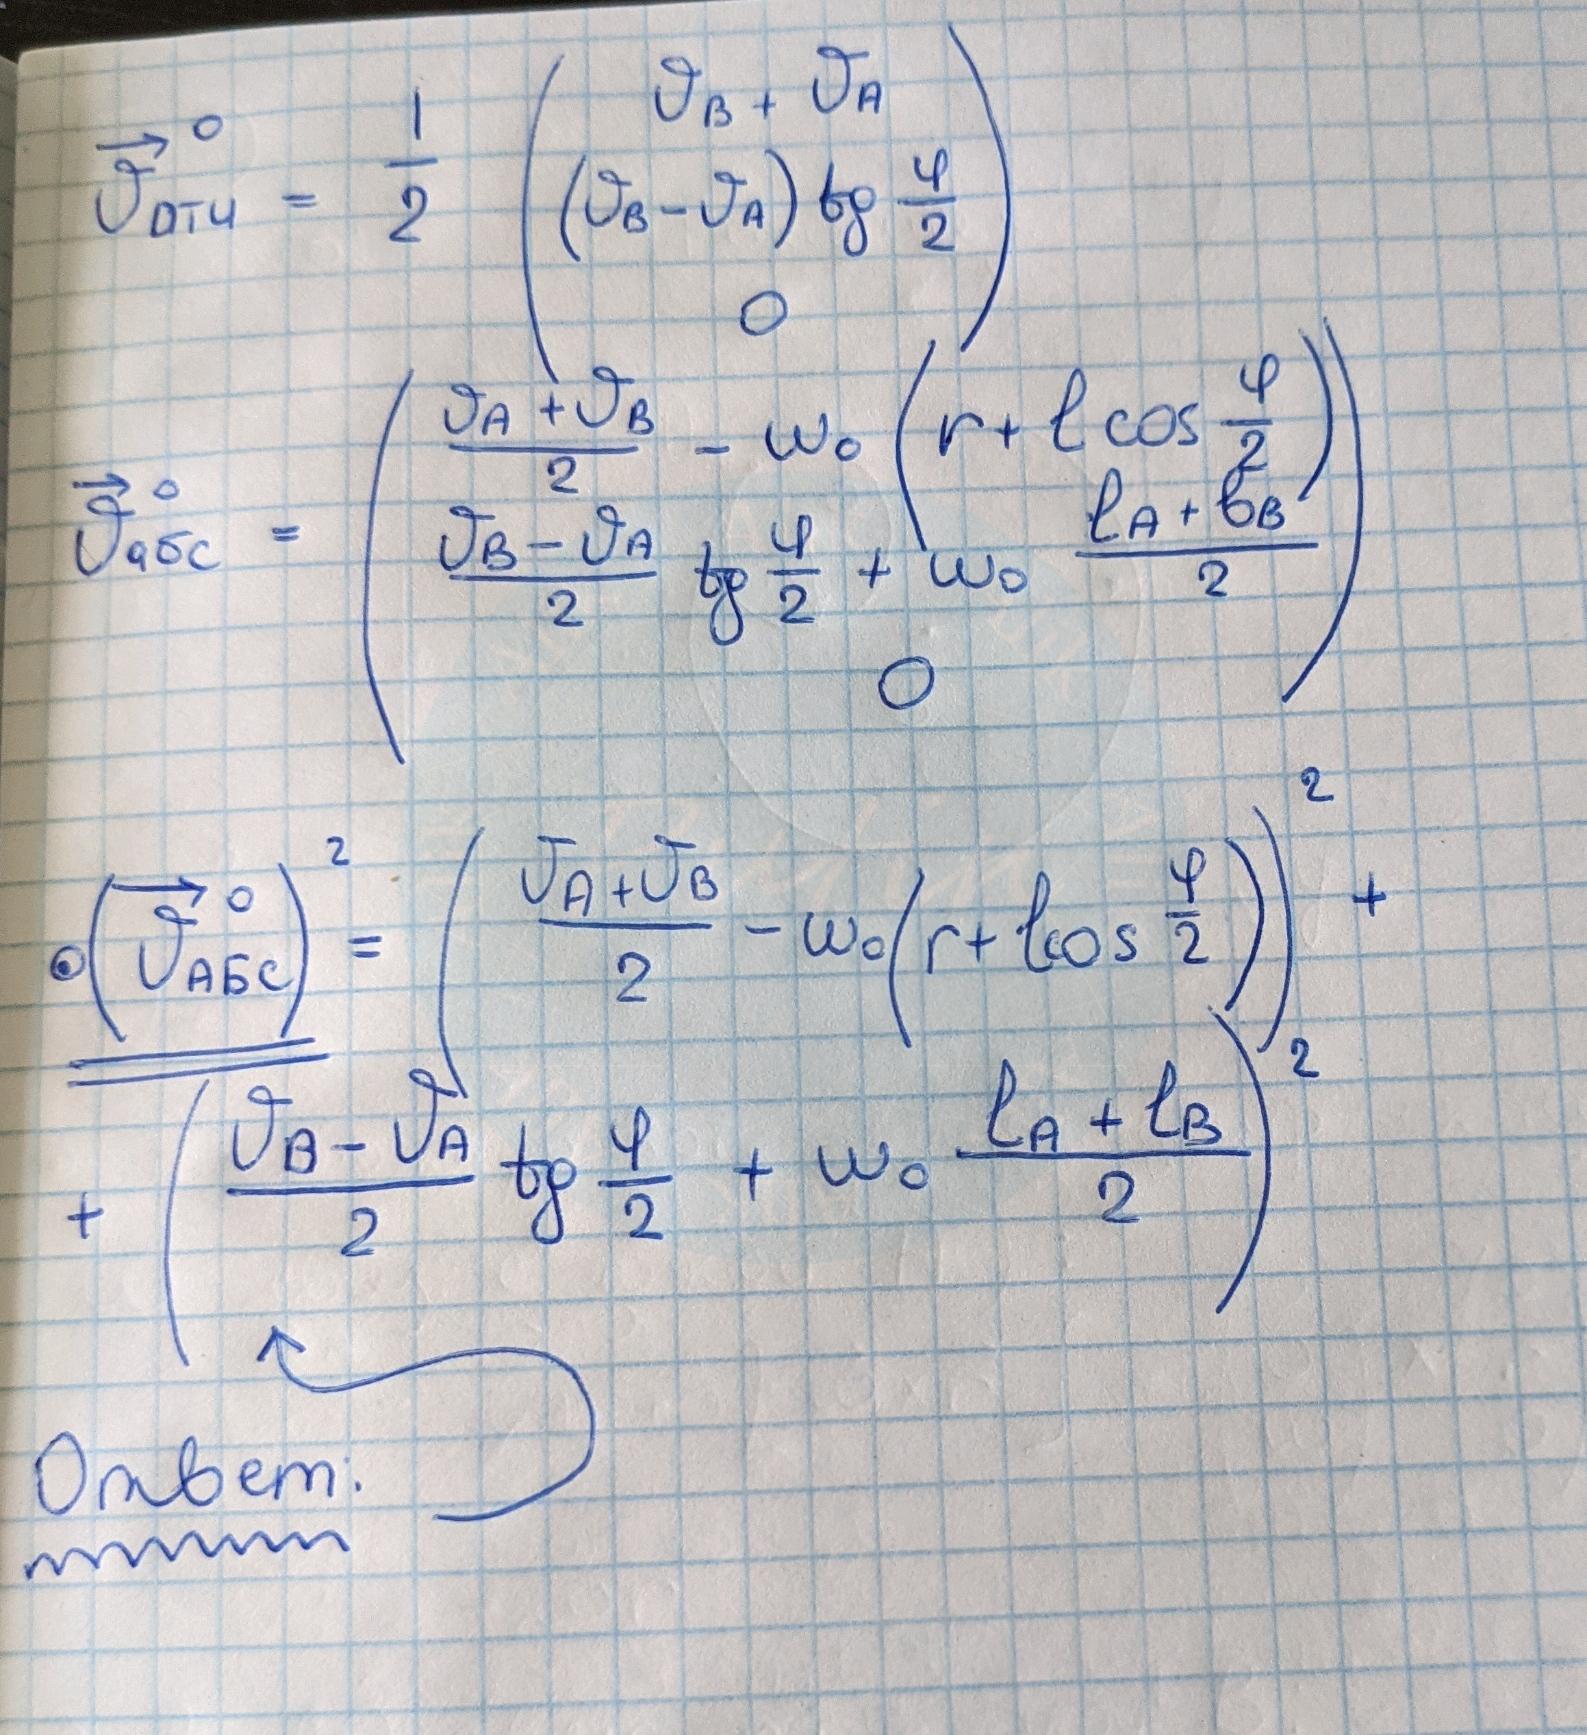 $\vec{v}^{\,0}_{отн} = \frac{1}{2} \begin{pmatrix} v_B + v_A \\ (v_B - v_A) \, tg \frac{\varphi}{2} \\ 0 \end{pmatrix}$
$\vec{v}^{\,0}_{абс} = \begin{pmatrix} \frac{v_A + v_B}{2} - \omega_0 \left( r + l \cos \frac{\varphi}{2} \right) \\ \frac{v_B - v_A}{2} \, tg \frac{\varphi}{2} + \omega_0 \frac{l_A + l_B}{2} \\ 0 \end{pmatrix}$
$\left( \vec{v}^{\,0}_{АБС} \right)^2 = \left( \frac{v_A + v_B}{2} - \omega_0 \left( r + l \cos \frac{\varphi}{2} \right) \right)^2 +$
$+ \left( \frac{v_B - v_A}{2} \, tg \frac{\varphi}{2} + \omega_0 \frac{l_A + l_B}{2} \right)^2$
Ответ: